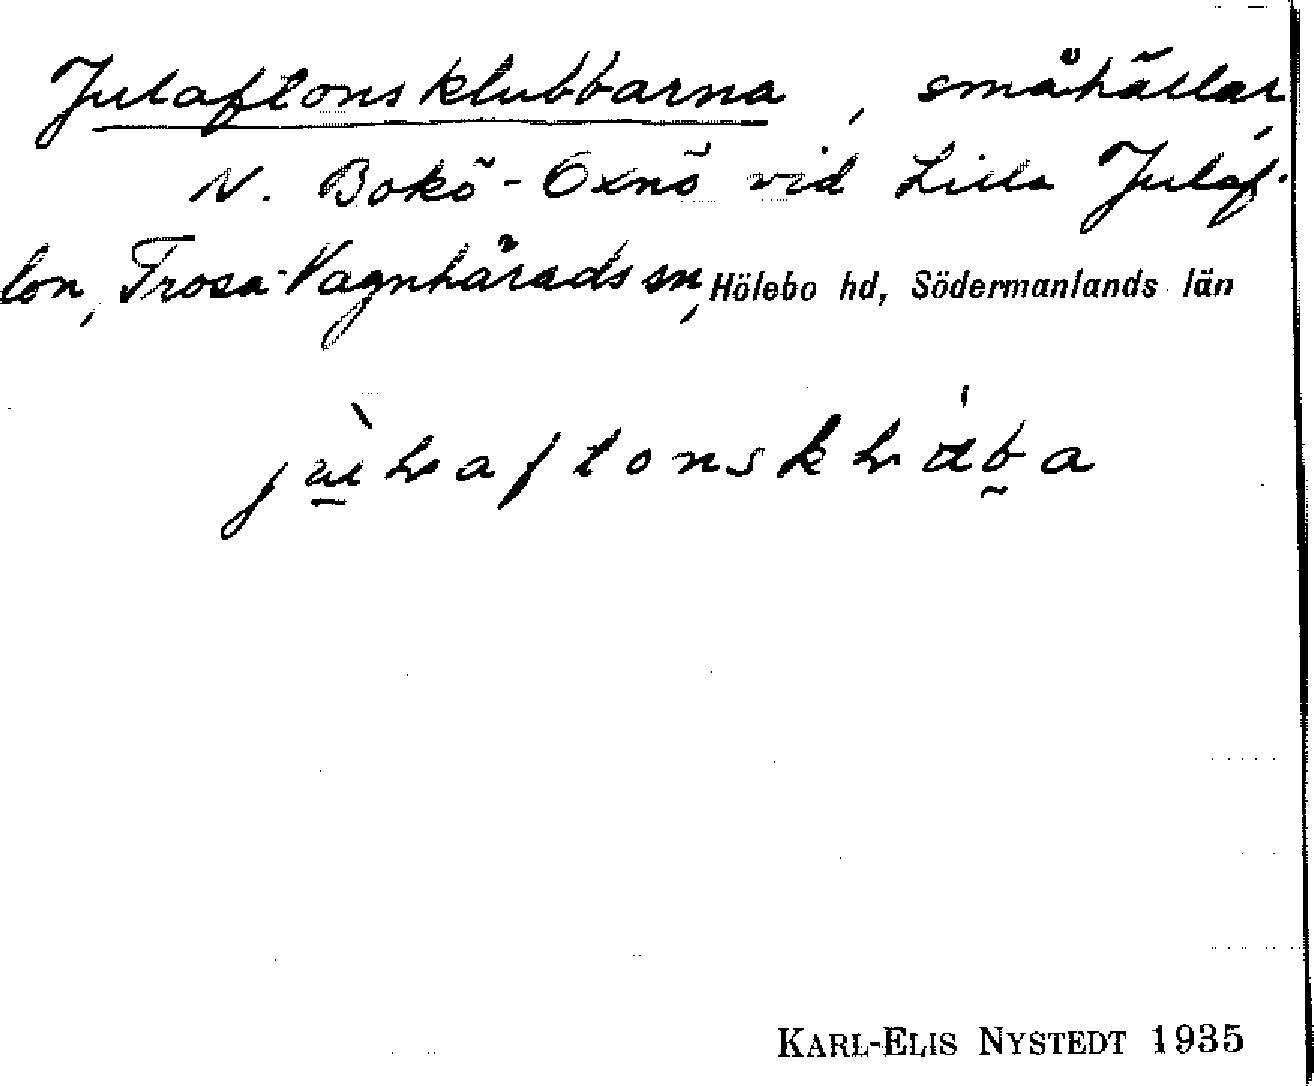 Julaftonsklubbarna, småhällar,
N. Bokö-Oxnö vid Lilla Julaf-
ton, Trosa-Vagnhärads sn, Hölebo hd, Södermanlands län
KARL-ELIS NYSTEDT 1935